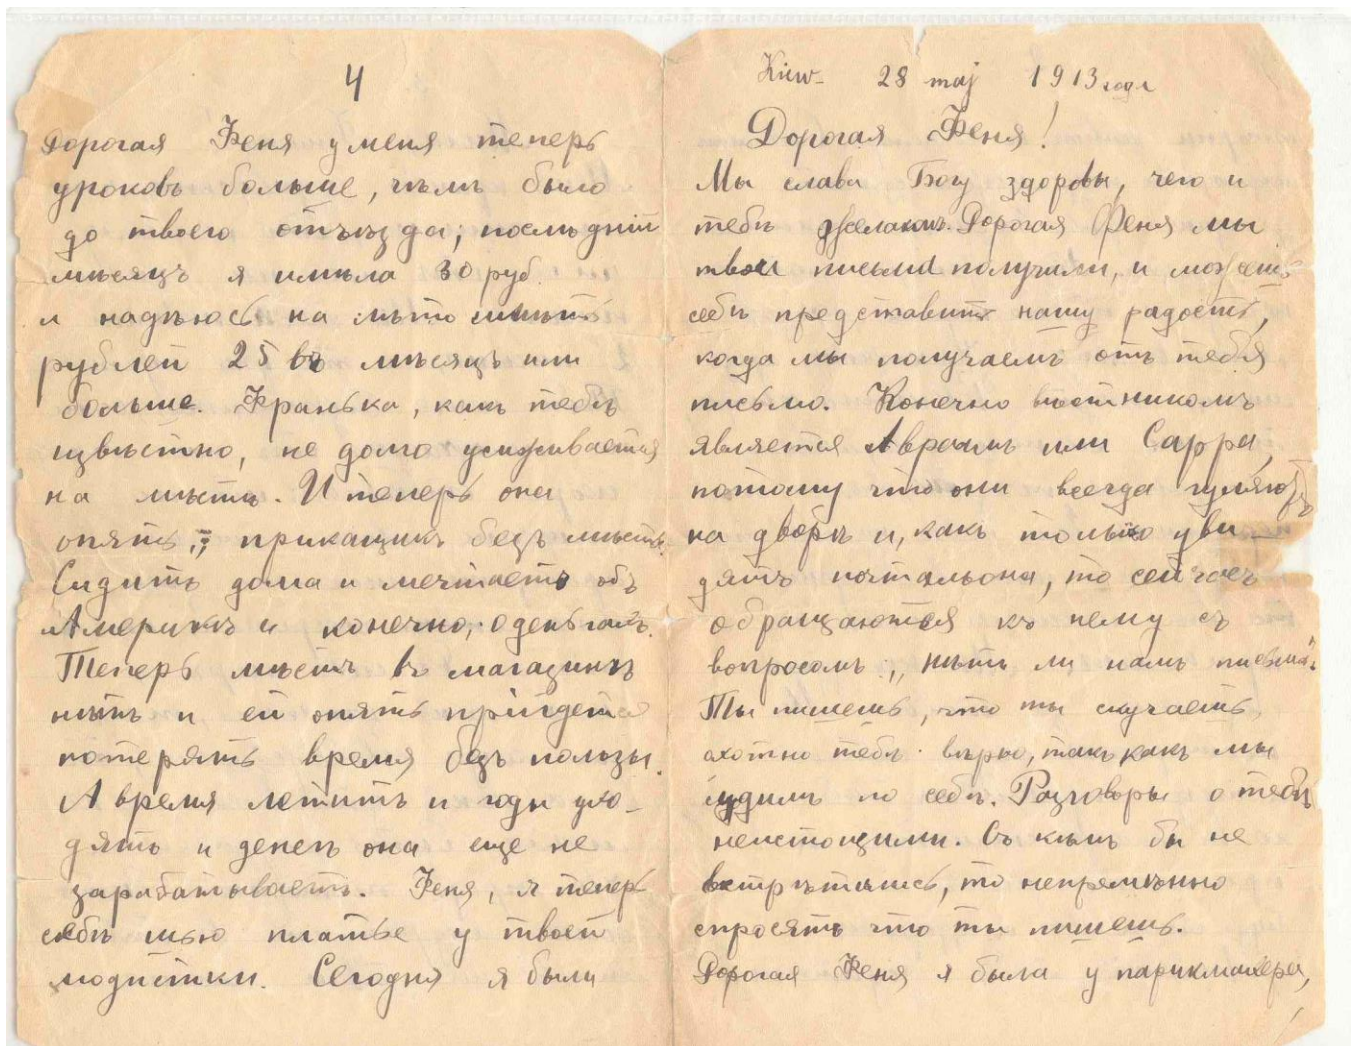 4
Дорогая Феня у меня теперь
уроковъ больше, чѣмъ было
до твоего отъѣзда; послѣдній
мѣсяцъ я имѣла 30 руб.
и надѣюсь на лѣто имѣть
рублей 25 въ мѣсяцъ или
больше. Франька, какъ тебѣ
извѣстно, не долго усиживается
на мѣстѣ. И теперь она
опять „ прикащикъ безъ мѣста.
Сидитъ дома и мечтаетъ объ
Америкѣ и конечно, о деньгахъ.
Теперь мѣстъ въ магазинѣ
нѣтъ и ей опять прійдется
потерять время безъ пользы.
А время летитъ и годы ухо-
дятъ и денегъ она еще не
зарабатываетъ. Феня, я теперь
себѣ шью платье у твоей
модистки. Сегодня я была
Kiiw- 28 maj 1913 года
Дорогая Феня!
Мы слава Богу здоровы, чего и
тебѣ желаемъ. Дорогая Феня мы
твои письма получили, и можешь
себѣ представить нашу радость,
когда мы получаемъ отъ тебя
письмо. Конечно вѣстникомъ
является Авраамъ или Сарра,
потому что они всегда гуляютъ
на дворѣ и, какъ только уви-
дятъ почтальона, то сейчасъ
обращаются къ нему съ
вопросомъ: „нѣтъ ли намъ письма“.
Ты пишешь, что ты скучаешь,
охотно тебѣ вѣрю, такъ какъ мы
судимъ по себѣ. Разговоры о тебѣ
неистощими. Съ кѣмъ бы не
встрѣтились, то непремѣнно
спросятъ что ты пишешь.
Дорогая Феня я была у парикмахера,